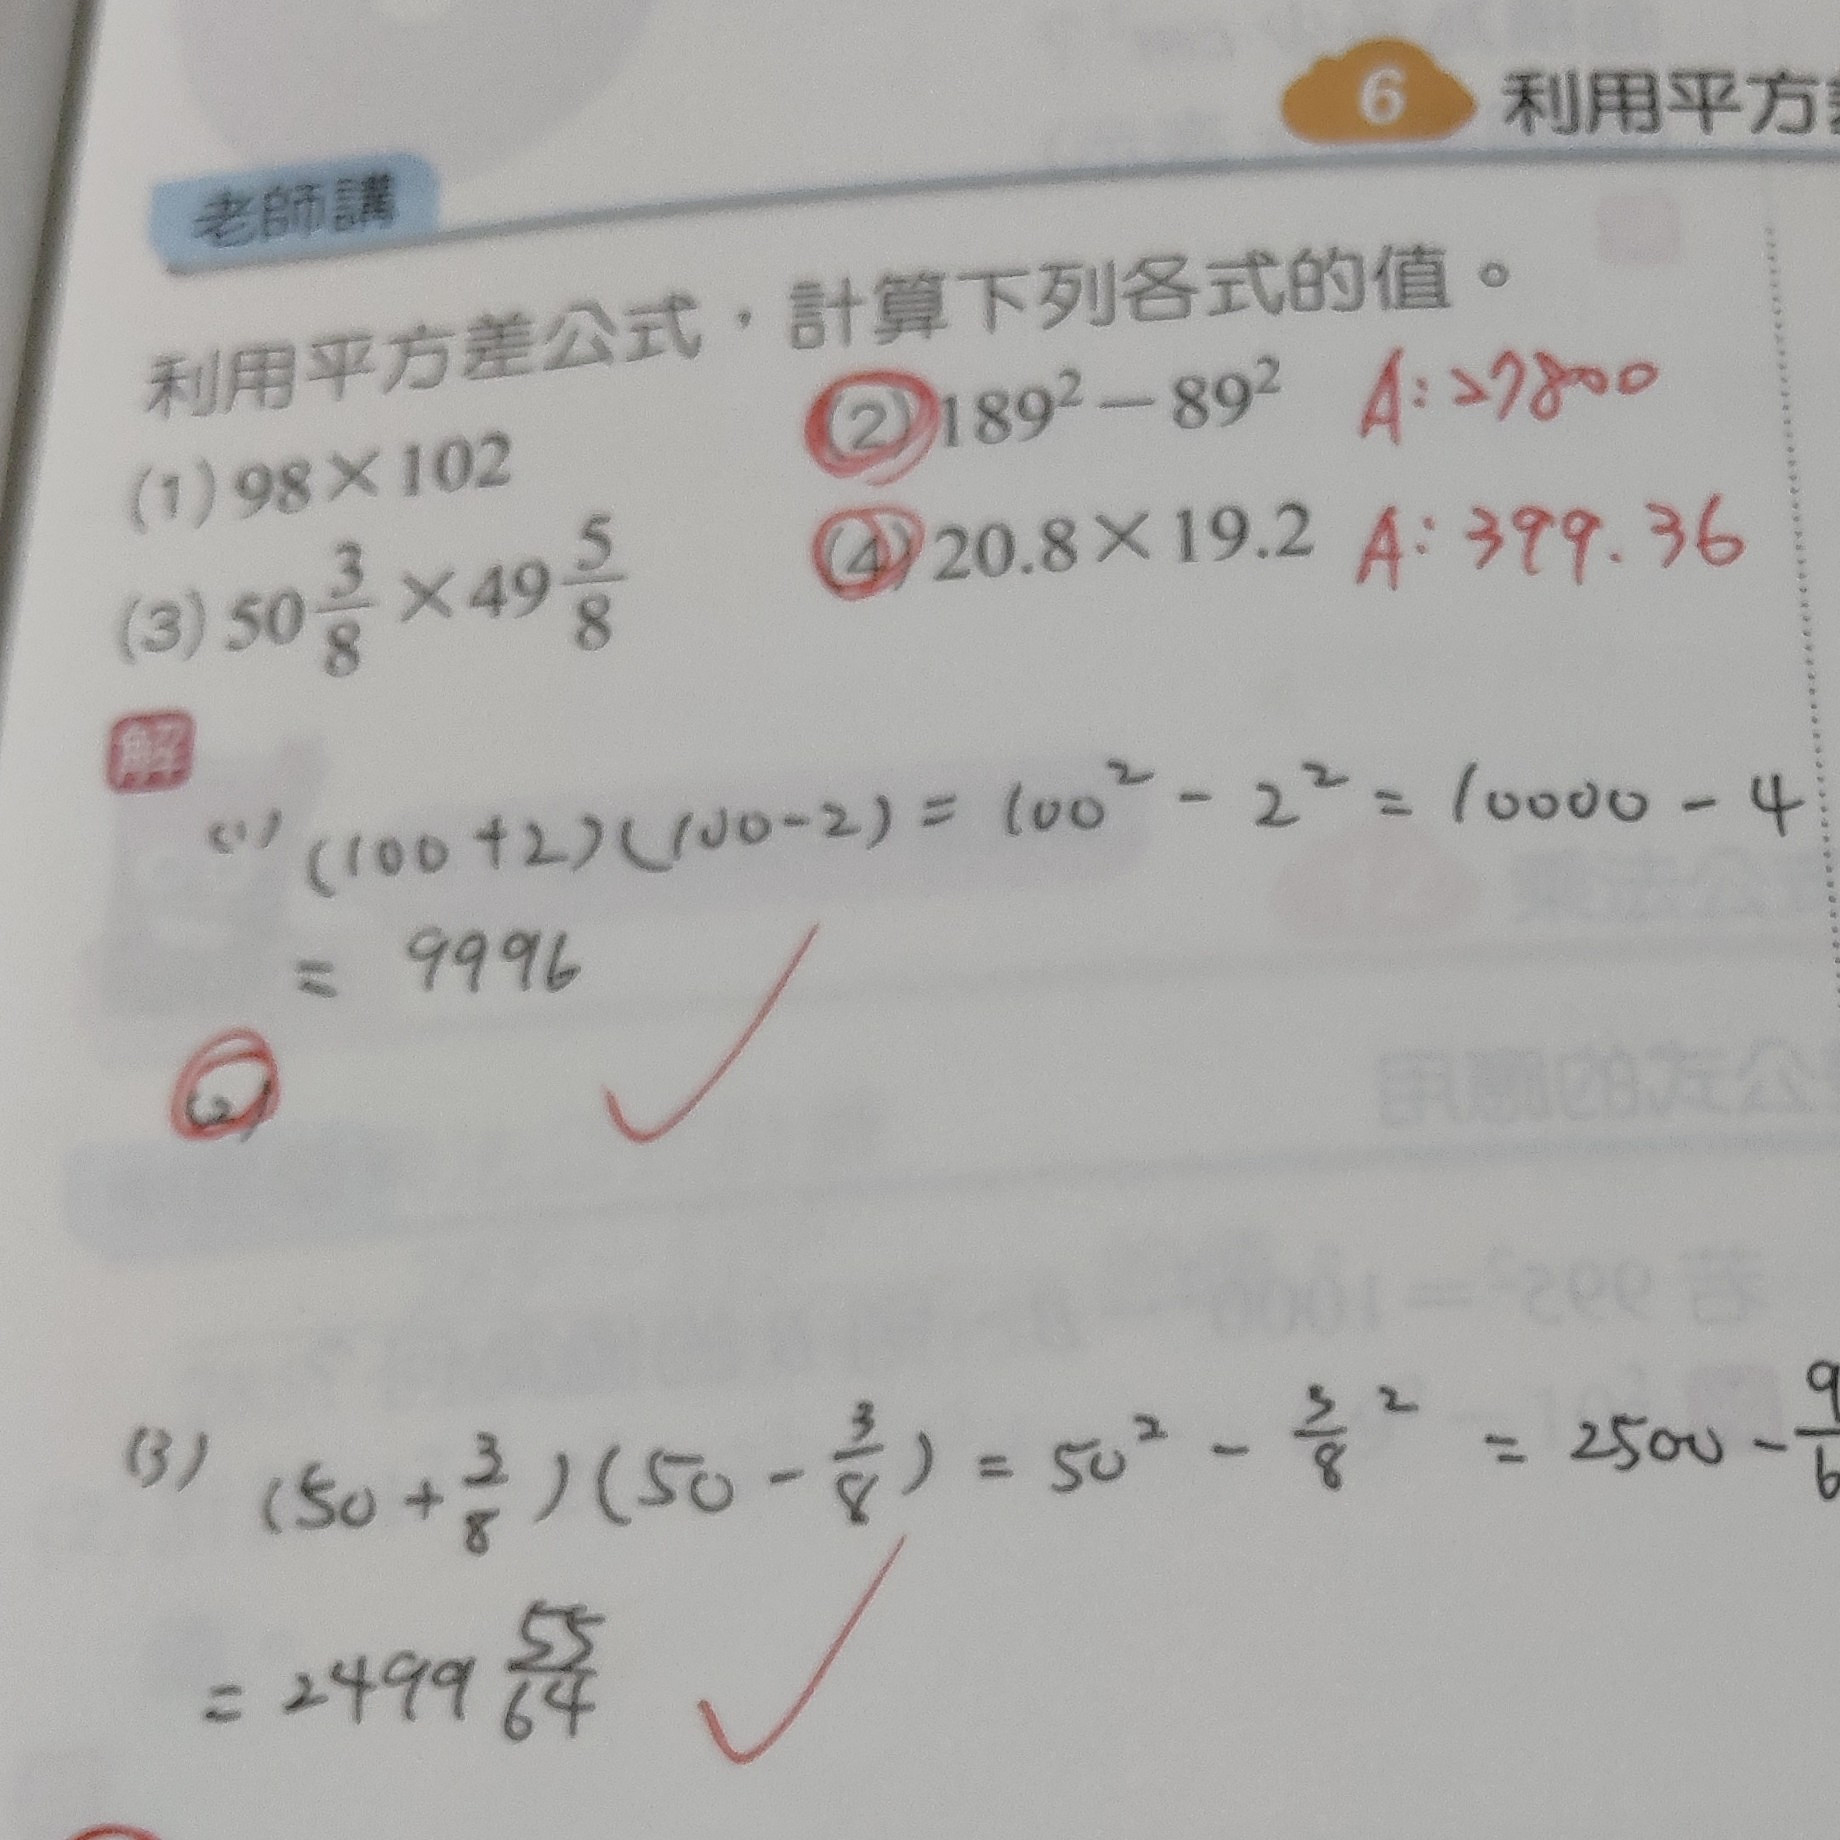 6 利用平方
老師講
利用平方差公式，計算下列各式的值。
(1) 98×102 (2) 189²－89² A: 27800
(3) 50 3/8 ×49 5/8 (4) 20.8×19.2 A: 399.36
解
(1) (100+2)(100-2) = 100² - 2² = 10000 - 4
= 9996
(2)
(3) (50 + 3/8)(50 - 3/8) = 50² - 3/8² = 2500 - 9/6
= 2499 55/64